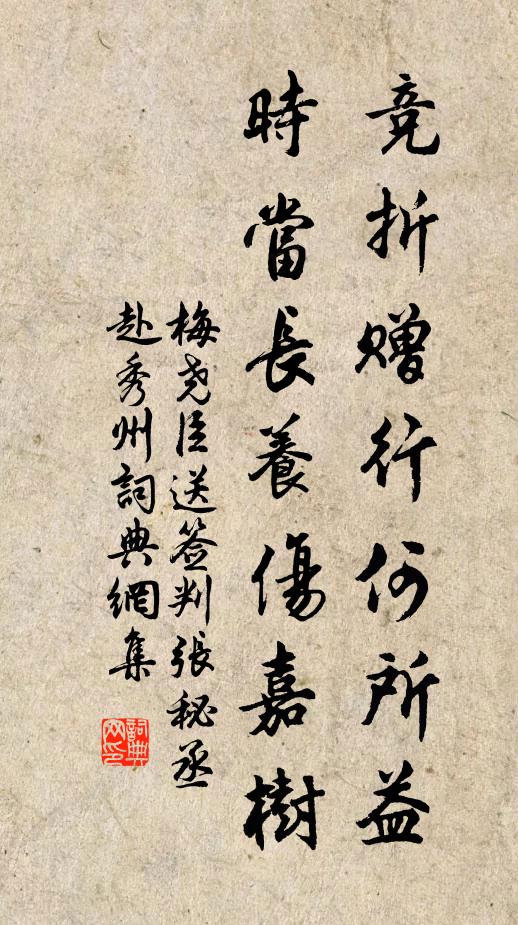 竞折赠行何所益
時當長養傷嘉樹
梅尧臣送签判張秘丞
赴秀州詞典網集
詞典
网印